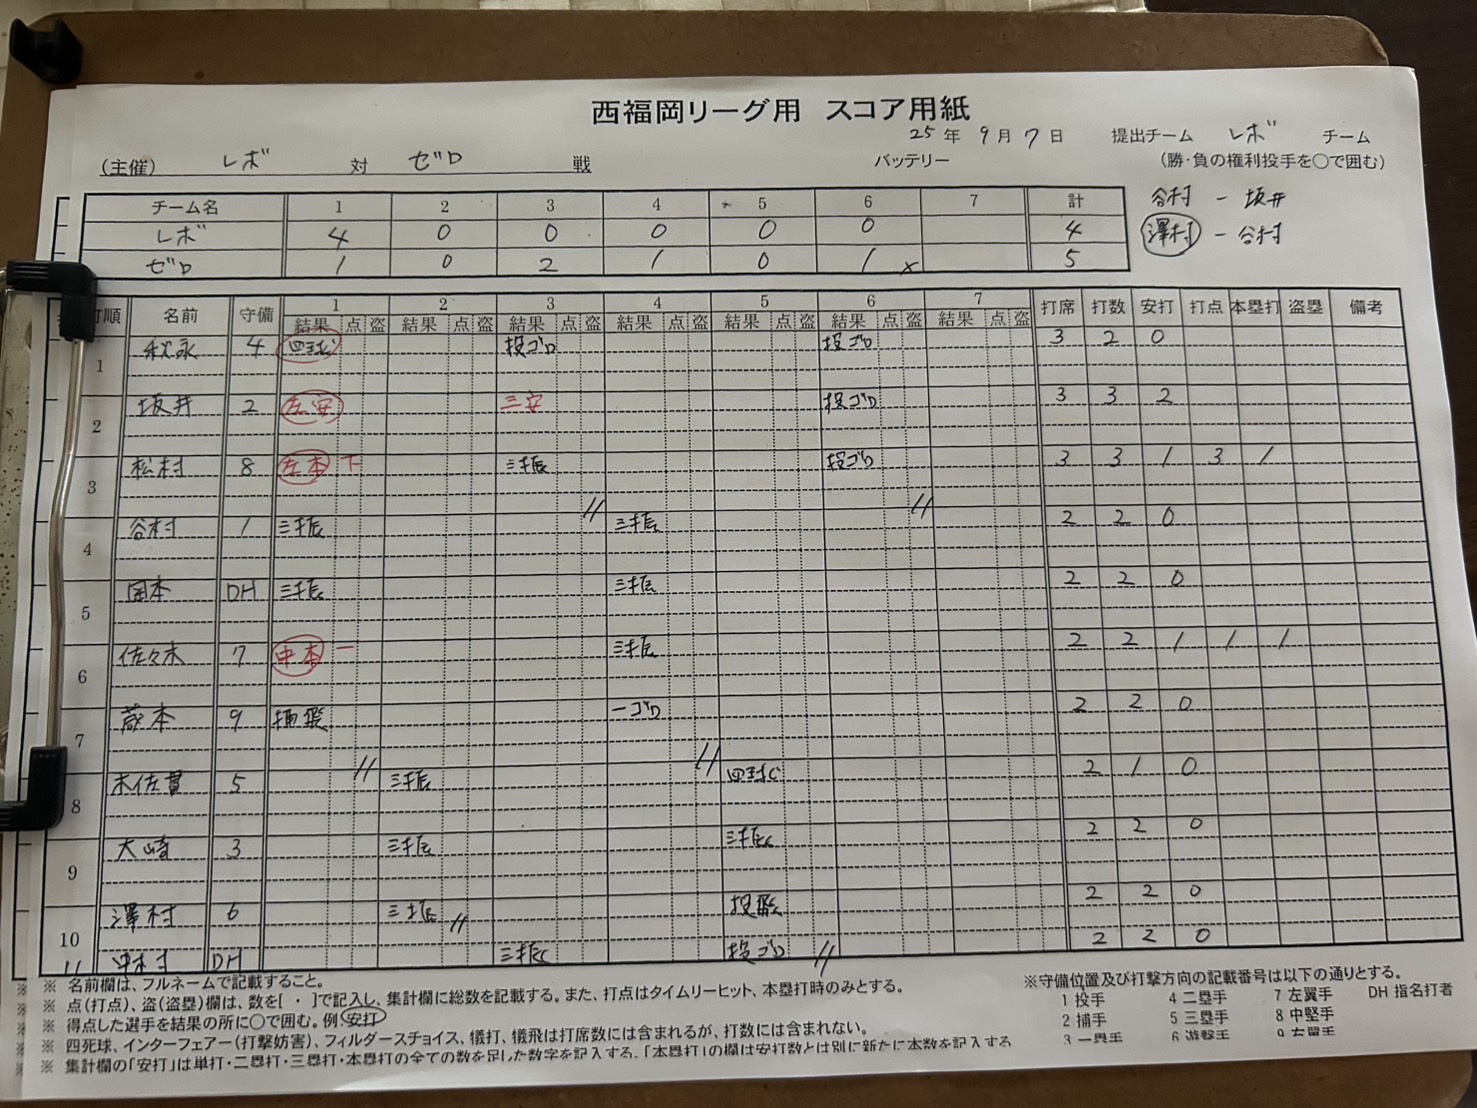 西福岡リーグ用 スコア用紙
25年 9月 7日 提出チーム レボ チーム
(主催) レボ 対 ゼロ 戦 バッテリー (勝・負の権利投手を○で囲む)
チーム名 1 2 3 4 5 6 7 計 谷村 - 坂井
レボ 4 0 0 0 0 0 4 澤村 - 谷村
ゼロ 1 0 2 1 0 1x 5
打順 名前 守備 1 2 3 4 5 6 7 打席 打数 安打 打点 本塁打 盗塁 備考
結果 点 盗 結果 点 盗 結果 点 盗 結果 点 盗 結果 点 盗 結果 点 盗 結果 点 盗
1 秋永 4 四球 投ゴロ 投ゴロ 3 2 0
2 坂井 2 左安 三安 投ゴロ 3 3 2
3 松村 8 左本 下 三振 投ゴロ 3 3 1 3 1
4 谷村 1 三振 三振 2 2 0
5 岡本 DH 三振 三振 2 2 0
6 佐々木 7 中本 一 三振 2 2 1 1 1
7 蔵本 9 捕飛 一ゴロ 2 2 0
8 木佐貫 5 三振 四球 2 1 0
9 大崎 3 三振 三振 2 2 0
10 澤村 6 三振 投飛 2 2 0
11 中村 DH 三振 投ゴロ 2 2 0
※ 名前欄は、フルネームで記載すること。
※ 点(打点)、盗(盗塁)欄は、数を[ ・ ]で記入し、集計欄に総数を記載する。また、打点はタイムリーヒット、本塁打時のみとする。
※ 得点した選手を結果の所に○で囲む。例:安打
※ 四死球、インターフェアー(打撃妨害)、フィルダースチョイス、犠打、犠飛は打席数には含まれるが、打数には含まれない。
※ 集計欄の「安打」は単打・二塁打・三塁打・本塁打の全ての数を足した数字を記入する。「本塁打」の欄は安打数とは別に新たに本数を記入する
※守備位置及び打撃方向の記載番号は以下の通りとする。
1 投手 4 二塁手 7 左翼手 DH 指名打者
2 捕手 5 三塁手 8 中堅手
3 一塁手 6 遊撃手 9 右翼手